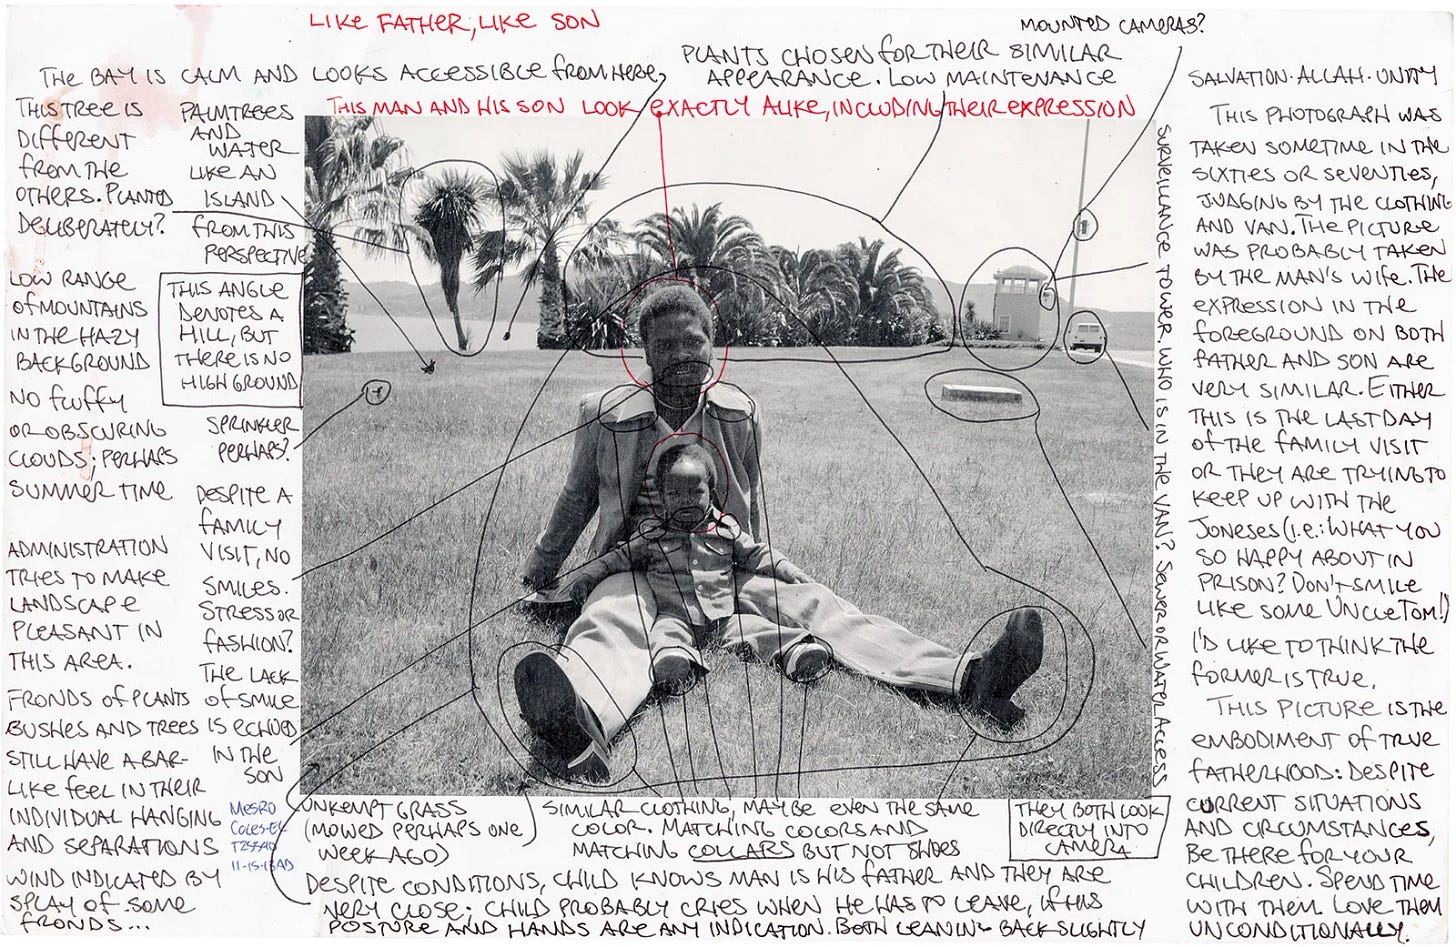 LIKE FATHER, LIKE SON
MOUNTED CAMERAS?
PLANTS CHOSEN FOR THEIR SIMILAR
APPEARANCE. LOW MAINTENANCE
THE BAY IS CALM AND LOOKS ACCESSIBLE FROM HERE,
THIS MAN AND HIS SON LOOK EXACTLY ALIKE, INCLUDING THEIR EXPRESSION
THIS TREE IS
DIFFERENT
FROM THE
OTHERS. PLANTED
DELIBERATELY?
PALMTREES
AND
WATER
LIKE AN
ISLAND
FROM THIS
PERSPECTIVE
LOW RANGE
OF MOUNTAINS
IN THE HAZY
BACKGROUND
NO FLUFFY
OR OBSCURING
CLOUDS; PERHAPS
SUMMER TIME
THIS ANGLE
DENOTES A
HILL, BUT
THERE IS NO
HIGH GROUND
SPRINKLER
PERHAPS?
DESPITE A
FAMILY
VISIT, NO
SMILES.
STRESS OR
FASHION?
THE LACK
OF SMILE
IS ECHOED
IN THE
SON
ADMINISTRATION
TRIES TO MAKE
LANDSCAPE
PLEASANT IN
THIS AREA.
FRONDS OF PLANTS
BUSHES AND TREES
STILL HAVE A BAR-
LIKE FEEL IN THEIR
INDIVIDUAL HANGING
AND SEPARATIONS
WIND INDICATED BY
SPLAY OF SOME
FRONDS...
MESRO
COLES-EL
11-15-13AD
UNKEMPT GRASS
(MOWED PERHAPS ONE
WEEK AGO)
SIMILAR CLOTHING, MAYBE EVEN THE SAME
COLOR. MATCHING COLORS AND
MATCHING COLLARS BUT NOT SHOES
THEY BOTH LOOK
DIRECTLY INTO
CAMERA
DESPITE CONDITIONS, CHILD KNOWS MAN IS HIS FATHER AND THEY ARE
VERY CLOSE; CHILD PROBABLY CRIES WHEN HE HAS TO LEAVE, IF HIS
POSTURE AND HANDS ARE ANY INDICATION. BOTH LEANING BACK SLIGHTLY
SURVEILLANCE TOWER. WHO IS IN THE VAN? SEWER OR WATER ACCESS
SALVATION · ALLAH · UNITY
THIS PHOTOGRAPH WAS
TAKEN SOMETIME IN THE
SIXTIES OR SEVENTIES,
JUDGING BY THE CLOTHING
AND VAN. THE PICTURE
WAS PROBABLY TAKEN
BY THE MAN'S WIFE. THE
EXPRESSION IN THE
FOREGROUND ON BOTH
FATHER AND SON ARE
VERY SIMILAR. EITHER
THIS IS THE LAST DAY
OF THE FAMILY VISIT
OR THEY ARE TRYING TO
KEEP UP WITH THE
JONESES (I.E.: WHAT YOU
SO HAPPY ABOUT IN
PRISON? DON'T SMILE
LIKE SOME UNCLE TOM!)
I'D LIKE TO THINK THE
FORMER IS TRUE.
THIS PICTURE IS THE
EMBODIMENT OF TRUE
FATHERHOOD: DESPITE
CURRENT SITUATIONS
AND CIRCUMSTANCES,
BE THERE FOR YOUR
CHILDREN. SPEND TIME
WITH THEM. LOVE THEM
UNCONDITIONALLY.